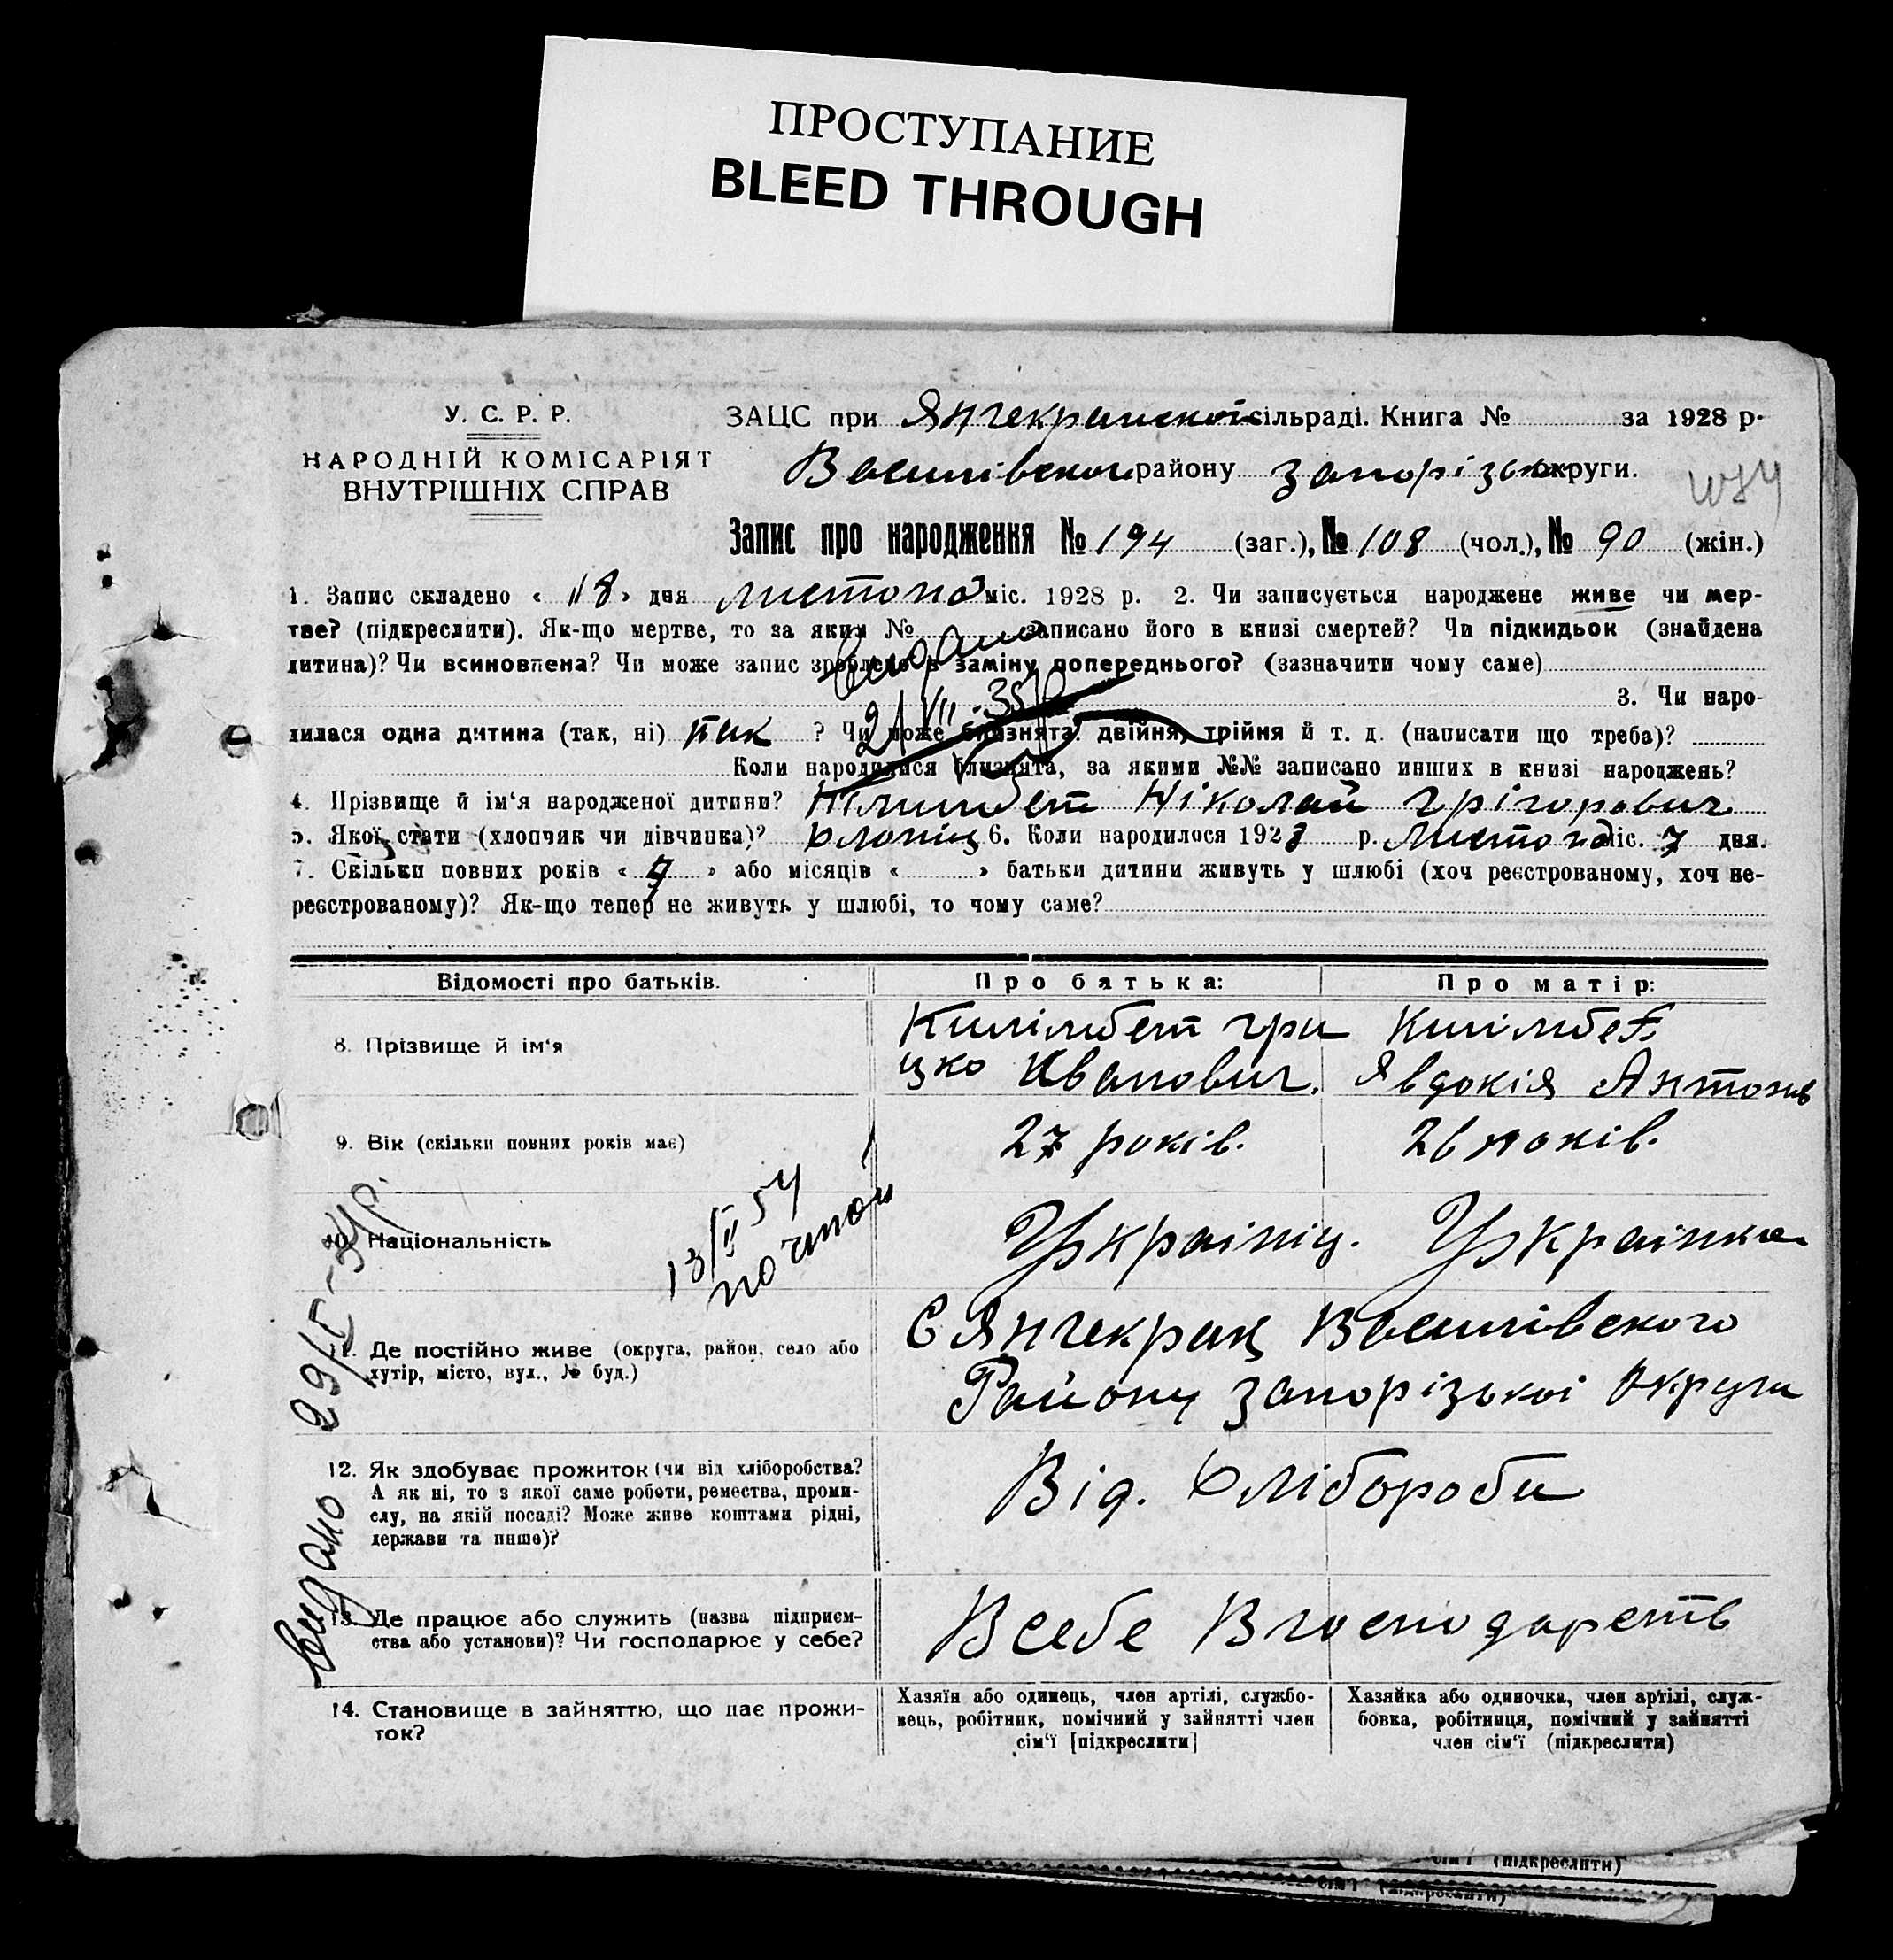 ПРОСТУПАНИЕ
BLEED THROUGH
У. С. Р. Р.
НАРОДНІЙ КОМІСАРІЯТ
ВНУТРІШНІХ СПРАВ
ЗАЦС при Янчекракской сільраді. Книга № за 1928 р.
Василівског району Запорізьк округи.
Запис про народження № 194 (заг.), № 108 (чол.), № 90 (жін.)
1. Запис складено « 18 » дня листопад міс. 1928 р. 2. Чи записується народжене живе чи мер-
тве? (підкреслити). Як-що мертве, то за яким № записано його в книзі смертей? Чи підкидьок (знайдена
дитина)? Чи всиновлена? Чи може запис зроблено в заміну попереднього? (зазначити чому саме)
видано
21/VII-35р
3. Чи наро-
дилася одна дитина (так, ні) так ? Чи може близнята: двійня, трійня й т. д. (написати що треба)?
Коли народилися близнята, за якими №№ записано инших в книзі народжень?
4. Прізвище й ім'я народженої дитини? Ніколай Грігорович
5. Якої стати (хлопчик чи дівчинка)? хлопіц 6. Коли народилося 1928 р. Листопад міс. 7 дня.
7. Скільки повних років « » або місяців « » батьки дитини живуть у шлюбі (хоч реєстрованому, хоч не-
реєстрованому)? Як-що тепер не живуть у шлюбі, то чому саме?
Відомості про батьків. Про батька: Про матір:
8. Прізвище й ім'я
Килімбет Гри
цко Іванович.
Килімбет
Явдокія Антонів
9. Вік (скільки повних років має) 27 років. 26 років.
10. Національність Українiц. Українка
13/II 54
почтой
11. Де постійно живе (округа, район, село або
хутір, місто, вул., № буд.)
С Янчекрак Василівского
Району Запорізькоі Округи
12. Як здобуває прожиток (чи від хліборобства?
А як ні, то з якої саме роботи, ремества, проми-
слу, на якій посаді? Може живе коштами рідні,
держави та инше)?
Від. Хлібороби
13. Де працює або служить (назва підприєм-
ства або установи)? Чи господарює у себе?
В себе В господарств
14. Становище в зайняттю, що дає прожи-
ток?
Хазяїн або одинець, член артілі, службо-
вець, робітник, помічний у зайнятті член
сім'ї [підкреслити]
Хазяйка або одиночка, член артілі, служ-
бовка, робітниця, помічний у зайнятті
член сім'ї (підкреслити)
видано 29/I-34р.
сім'ї (підкреслити)
сім'ї (підкреслити)